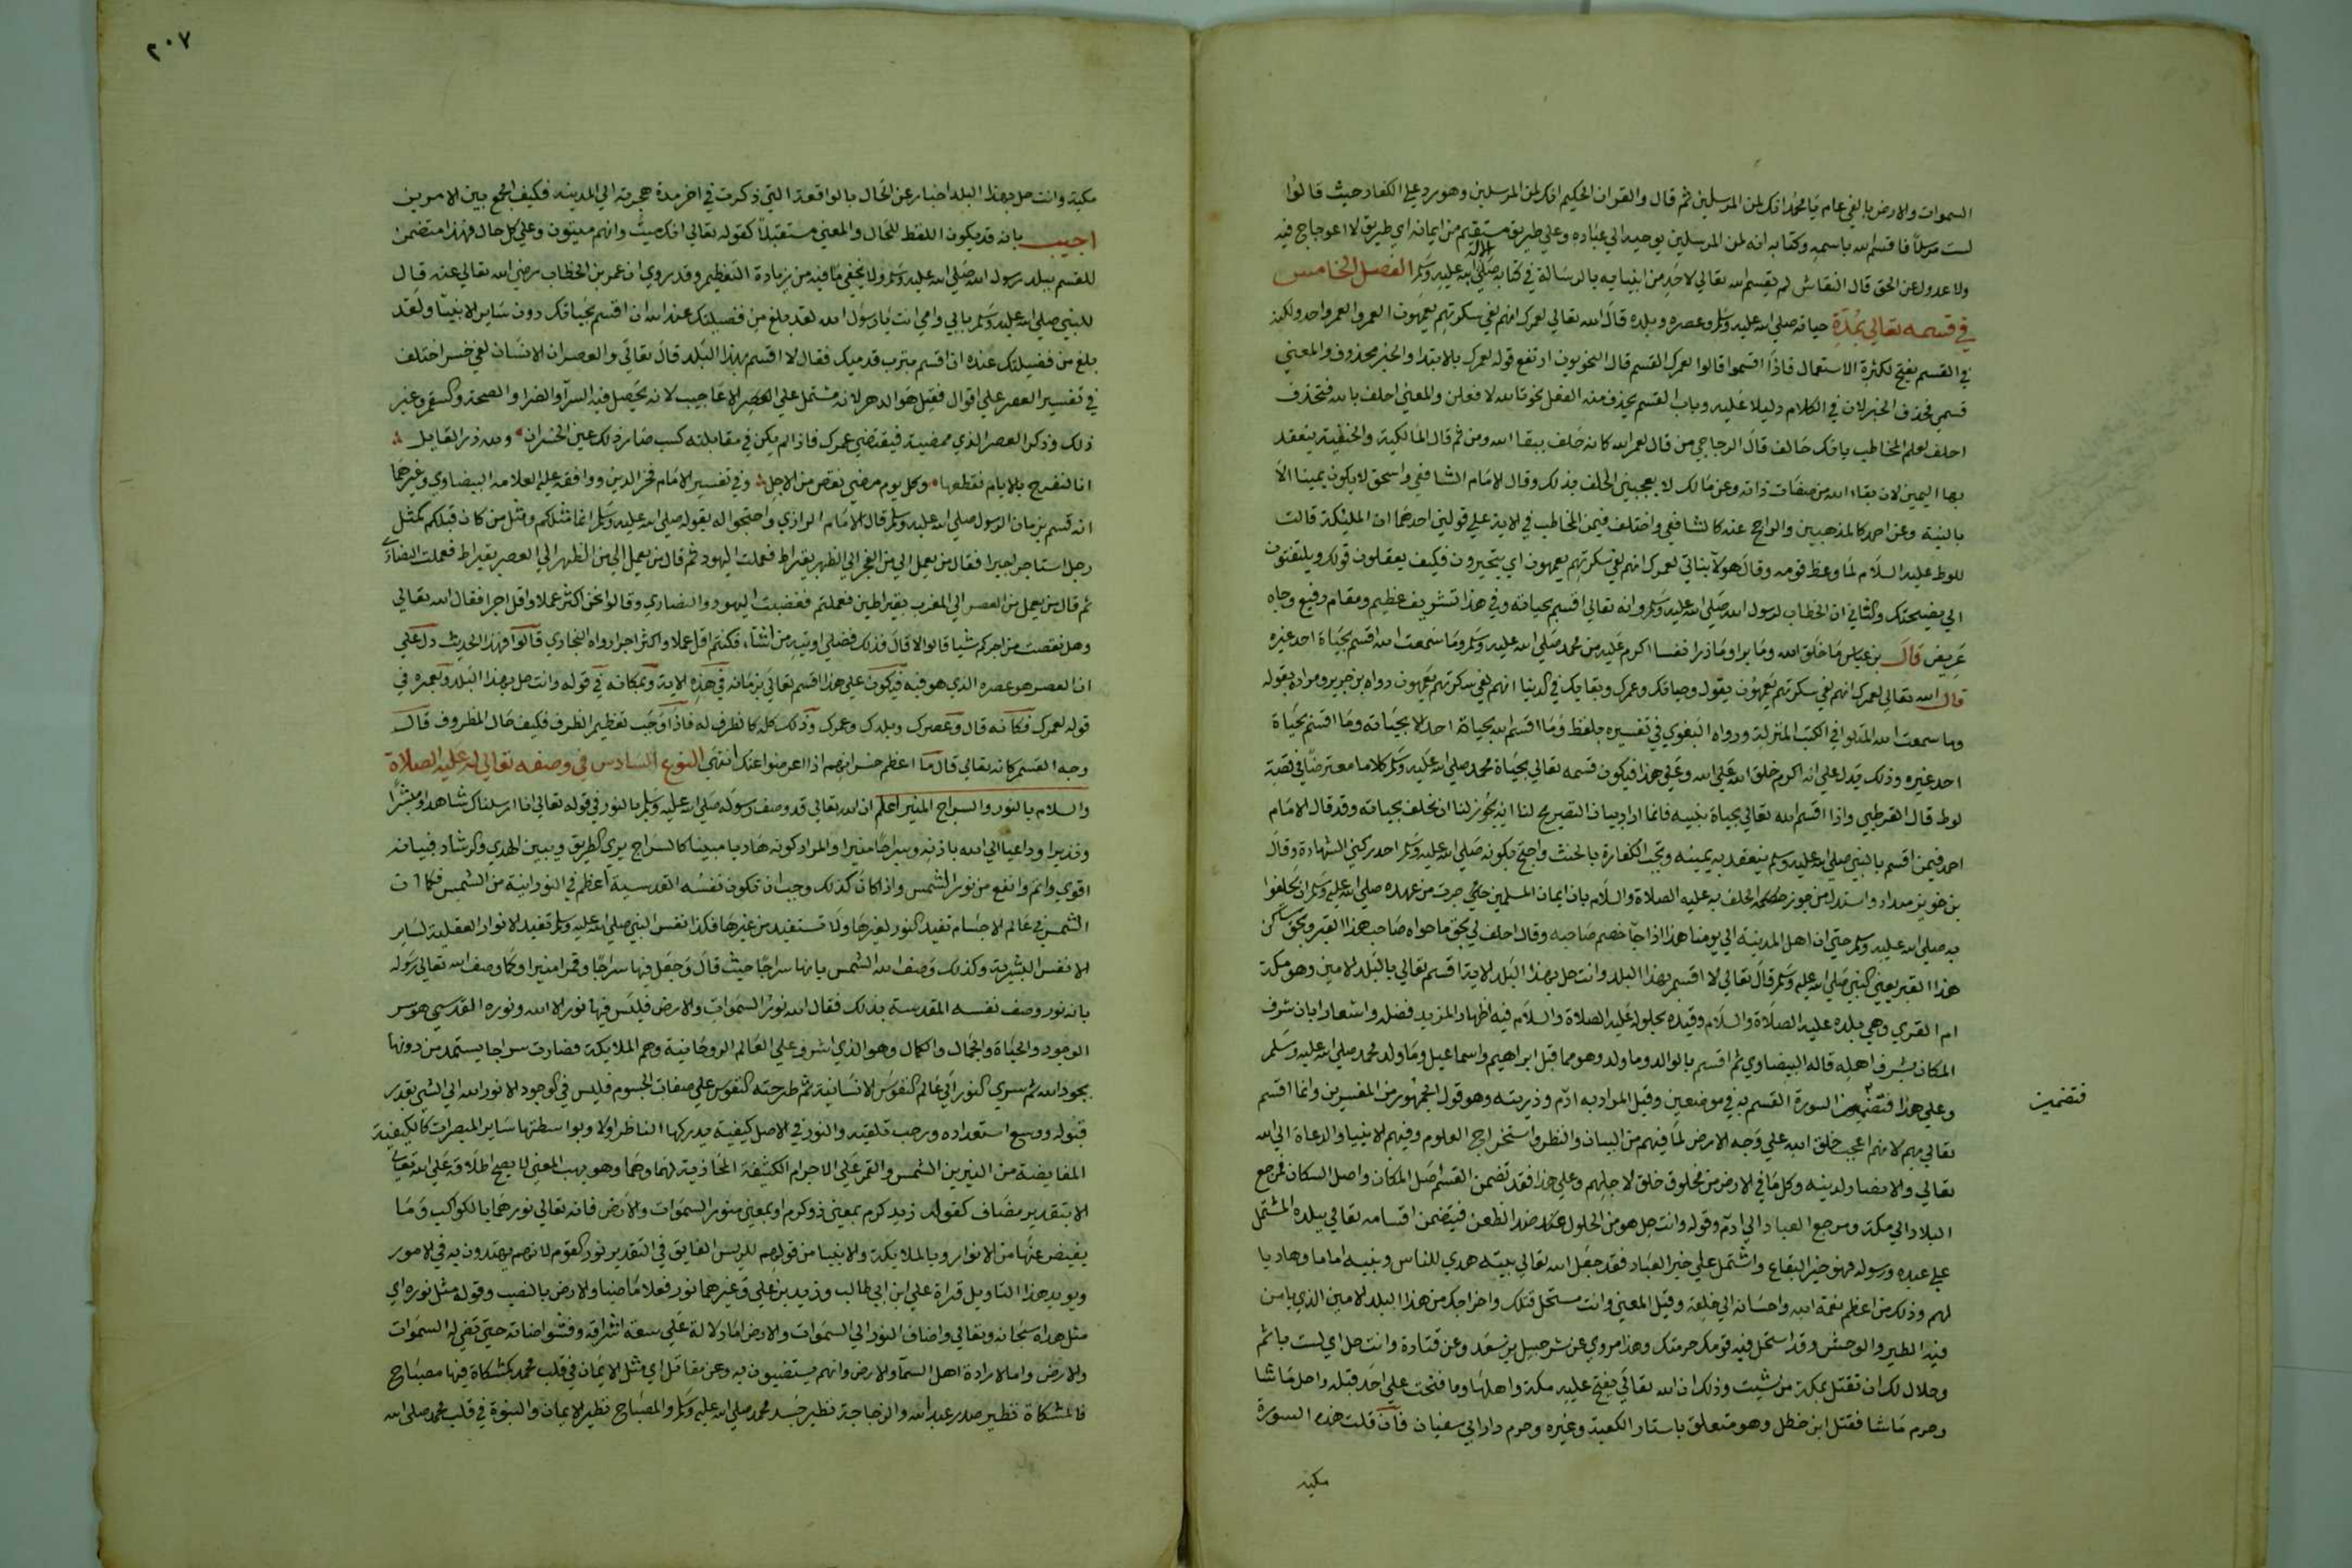 السموات والارض بالفي عام يا محمد انك لمن المرسلين ثم قال والقران الحكيم انك لمن المرسلين وهو رد علي الكفار حيث قالوا
لست مرسلا فاقسم الله باسمه وكتابه انه لمن المرسلين بوحيه الي عباده وعلي طريق مستقيم من ايمانه اي طريق لا اعوجاج فيه
ولا عدول عن الحق قال النقاش لم يقسم الله تعالي لاحد من انبيايه بالرسالة في كتابه الا له صلي الله عليه وسلم الفصل الخامس
في قسمه تعالي بمدة حياته صلي الله عليه وسلم وعصره وبلده قال الله تعالي لعمرك انهم لفي سكرتهم يعمهون العمر والعمر واحد ولكنه
في القسم يفتح لكثرة الاستعمال فاذا اقسموا قالوا لعمرك القسم قال النحويون ارتفع قوله لعمرك بالابتدا والخبر محذوف والمعني
قسمي فحذف الخبر لان في الكلام دليلا عليه وباب القسم يحذف منه الفعل نحو تالله لافعلن والمعني احلف بالله فتحذف
احلف لعلم المخاطب بانك حالف قال الزجاجي من قال لعمر الله كانه حلف ببقا الله ومن ثم قال المالكية والحنفية ينعقد
بها اليمين لان بقاء الله من صفات ذاته وعن مالك لا يعجبني الحلف بذلك وقال الامام الشافعي واسحق لا يكون يمينا الا
بالنية وعن احمد كالمذهبين والراجح عنده كالشافعي واختلف فيمن المخاطب في الاية علي قولين احدهما ان المليكة قالت
للوط عليه السلام لما وعظ قومه وقال هولآ بناتي لعمرك انهم لفي سكرتهم يعمهون اي يتحيرون فكيف يعقلون قولك ويلتفتون
الي نصيحتك والثاني ان الخطاب لرسول الله صلي الله عليه وسلم وانه تعالي اقسم بحياته وفي هذا تشريف عظيم ومقام رفيع وجاه
عريض قال بن عباس ما خلق الله وما برا وما ذرا نفسا اكرم عليه من محمد صلي الله عليه وسلم وما سمعت الله اقسم بحياة احد غيره
قال الله تعالي لعمرك انهم لفي سكرتهم يعمهون يقول وحياتك وعمرك وبقايك في الدنيا انهم لفي سكرتهم يعمهون رواه بن جرير ومراده بقوله
وما سمعت الله المتلو في الكتب المنزلة ورواه البغوي في تفسيره بلفظ وما اقسم الله بحياة احد الا بحياته وما اقسم بحياة
احد غيره وذلك يدل علي انه اكرم خلق الله علي الله وعلي هذا فيكون قسمه تعالي بحياة محمد صلي الله عليه وسلم كلاما معترضا في قصة
لوط قال القرطبي واذا اقسم الله تعالي بحياة نبيه فانما اراد بيان التصريح لنا انه يجوز لنا ان نحلف بحياته وقد قال الامام
احمد فيمن اقسم بالنبي صلي الله عليه وسلم ينعقد به يمينه وتجب الكفارة بالحنث واحتج بكونه صلي الله عليه وسلم احد ركني الشهادة وقال
بن خويز منداد واستدل من جوز الحلف به عليه الصلاة والسلام بان ايمان المسلمين جرت من عهده صلي الله عليه وسلم ان يحلفوا
به صلي الله عليه وسلم حتي ان اهل المدينة الي يومنا هذا اذا جآ خصم صاحبه وقال احلف لي بحق ما حواه صاحب هذا القبر وبحق ساكن
هذا القبر يعني النبي صلي الله عليه وسلم قال تعالي لا اقسم بهذا البلد وانت حل بهذا البلد الاية اقسم تعالي بالبلد الامين وهو مكة
ام القري وهي بلده عليه الصلاة والسلام وقيده بحلوله عليه الصلاة والسلام فيه اظهارا لمزيد فضله واشعارا بان شرف
المكان بشرف اهله قاله البيضاوي ثم اقسم بالوالد وما ولد وهو مما قيل ابراهيم واسماعيل وما ولد محمد صلي الله عليه وسلم
وعلي هذا فتضمن السورة القسم به في موضعين وقيل المراد به ادم وذريته وهو قول الجمهور من المفسرين وانما اقسم
فتضمين
تعالي بهم لانهم اعجب خلق الله علي وجه الارض لما فيهم من البيان والنظر واستخراج العلوم وفيهم الانبيا والدعاة الي الله
تعالي والانصار لدينه وكل ما في الارض من مخلوق خلق لاجلهم وعلي هذا فقد تضمن القسم اصل المكان واصل السكان فمرجع
البلاد الي مكة ومرجع العباد الي ادم وقوله وانت حل هو من الحلول ضد الظعن فيتضمن اقسامه تعالي ببلده المشتمل
علي عبده ورسوله فهو خير البقاع واشتمل علي خير العباد فقد جعل الله تعالي بيته هدي للناس ونبيه اماما وهاديا
لهم وذلك من اعظم نعمة الله واحسانه الي خلقه وقيل المعني وانت مستحل قتلك واخراجك من هذا البلد الامين الذي يامن
فيه الطير والوحش وقد استحل فيه قومك حرمتك وهذا مروي عن شرحبيل بن سعد وعن قتادة وانت حل اي لست باثم
وحلال لك ان تقتل بمكة من شيت وذلك ان الله تعالي يفتح عليه مكة واهلها وما فتحت علي احد قبله واحل ما شا
وحرم ما شا فقتل ابن خطل وهو متعلق باستار الكعبة وغيره وحرم دار ابي سفيان فان قلت هذه السورة
مكية
٢٠٧
مكية وانت حل بهذا البلد اخبار عن الحال بالواقعة التي ذكرت في اخر مدة هجرته الي المدينة فكيف الجمع بين الامرين
اجيب بانه قد يكون اللفظ للحال والمعني مستقبلا كقوله تعالي انك ميت وانهم ميتون وعلي كل حال فهذا متضمن
للقسم ببلد رسول الله صلي الله عليه وسلم ولا يخفي ما فيه من زيادة التعظيم وقد روي ان عمر بن الخطاب رضي الله تعالي عنه قال
للنبي صلي الله عليه وسلم بابي وامي انت يا رسول الله لقد بلغ من فضيلتك عند الله ان اقسم بحياتك دون ساير الانبيا ولقد
بلغ من فضيلتك عنده ان اقسم بترب قدميك فقال لا اقسم بهذا البلد قال تعالي والعصر ان الانسان لفي خسر اختلف
في تفسير العصر علي اقوال فقيل هو الدهر لانه مشتمل علي الاعاجيب لانه يحصل فيه السرآ والضرا والصحة والسقم وغير
ذلك وذكر العصر الذي بمضيه فينقضي عمرك فاذا لم يكن في مقابلته كسب صار ذلك عين الخسران ولله در القايل
انا لنفرح بالايام نقطعها وكل يوم مضي نقص من الاجل وفي تفسير الامام فخر الدين ووافقه عليه العلامه البيضاوي وغيرهما
انه قسم بزمان الرسول صلي الله عليه وسلم قال الامام الرازي واحتجوا له بقوله صلي الله عليه وسلم انما مثلكم ومثل من كان قبلكم كمثل
رجل استاجر اجيرا فقال من يعمل لي من الفجر الي الظهر بقيراط فعملت اليهود ثم قال من يعمل لي من الظهر الي العصر بقيراط فعملت النصاري
ثم قال من يعمل من العصر الي المغرب بقيراطين فعملتم فغضبت اليهود والنصاري وقالوا نحن اكثر عملا واقل اجرا فقال الله تعالي
وهل نقصت من اجركم شيا قالوا لا قال فذلك فضلي اوتيه من اشآء فكنتم اقل عملا واكثر اجرا رواه البخاري قالوا فهذا الحديث دل علي
ان العصر هو عصره الذي هو فيه فيكون علي هذا اقسم تعالي بزمانه في هذه الاية وبمكانه في قوله وانت حل بهذا البلد وبعمره في
قوله لعمرك فكانه قال وعصرك وبلدك وعمرك وذلك كله كالظرف له فاذا وجب تعظيم الظرف فكيف حال المظروف قال
وجه القسم كانه تعالي قال ما اعظم خسرانهم اذا اعرضوا عنك انتهي النوع السادس في وصفه تعالي له عليه الصلاة
والسلام بالنور والسراج المنير اعلم ان الله تعالي قد وصف رسوله صلي الله عليه وسلم بالنور في قوله تعالي انا ارسلناك شاهدا ومبشرا
ونذيرا وداعيا الي الله باذنه وسراجا منيرا والمراد كونه هاديا مبينا كالسراج يري الطريق ويبين الهدي والرشاد فبيانه
اقوي واتم وانفع من نور الشمس واذا كان كذلك وجب ان تكون نفسه القدسية اعظم في النورانية من الشمس فكما ان
الشمس في عالم الاجسام تفيد النور لغيرها ولا تستفيد من غيرها فكذا نفس النبي صلي الله عليه وسلم تفيد الانوار العقلية لساير
الانفس البشرية وكذلك وصف الله الشمس بانها سراجا حيث قال وجعل فيها سراجا وقمرا منيرا وكما وصف الله تعالي رسوله
بانه نور وصف نفسه المقدسة بذلك فقال الله نور السموات والارض فليس فيها نور الا الله ونوره القدسي هو سر
الوجود والحياة والجمال والكمال وهو الذي اشرق علي العالم الروحانية وهم الملايكة فصارت سراجا يستمد من دونها
بجود الله ثم سري النور الي عالم النفوس الانسانية ثم طرحته النفوس علي صفات الجسوم فليس في الوجود الا نور الله الي الشي بقدر
قبوله ووسع استعداده ورحب تلقيه والنور في الاصل كيفية يدركها الناظر اولا وبواسطتها ساير المبصرات كالكيفية
الفايضة من النيرين الشمس والقمر علي الاجرام الكثيفة المحاذية لهما وهو بهذا المعني لا يصح اطلاقه علي الله تعالي
الا بتقدير مضاف كقولك زيد كرم بمعني ذو كرم او بمعني منور السموات والارض فانه تعالي نورهما بالكواكب وما
يفيض عنها من الانوار وبالملايكة والانبيا من قولهم للريس الفايق في التقدير نور القوم لانهم يهتدون به في الامور
ويويد هذا التاويل قراة علي ابن ابي طالب وزيد بن علي وغيرهما نور فعلا ماضيا والارض بالنصب وقوله مثل نوره اي
مثل هداه سبحانه وتعالي واضاف النور الي السموات والارض اما دلالة علي سعة اشراقه وفشو اضاته حتي تضي له السموات
والارض واما لارادة اهل السمآ والارض وانهم يستضيون به وعن مقاتل اي مثل الايمان في قلب محمد كمشكاة فيها مصباح
فالمشكاة نظير صدر عبد الله والزجاجة نظير جسد محمد صلي الله عليه وسلم والمصباح نظير الايمان والنبوة في قلب محمد صلي الله